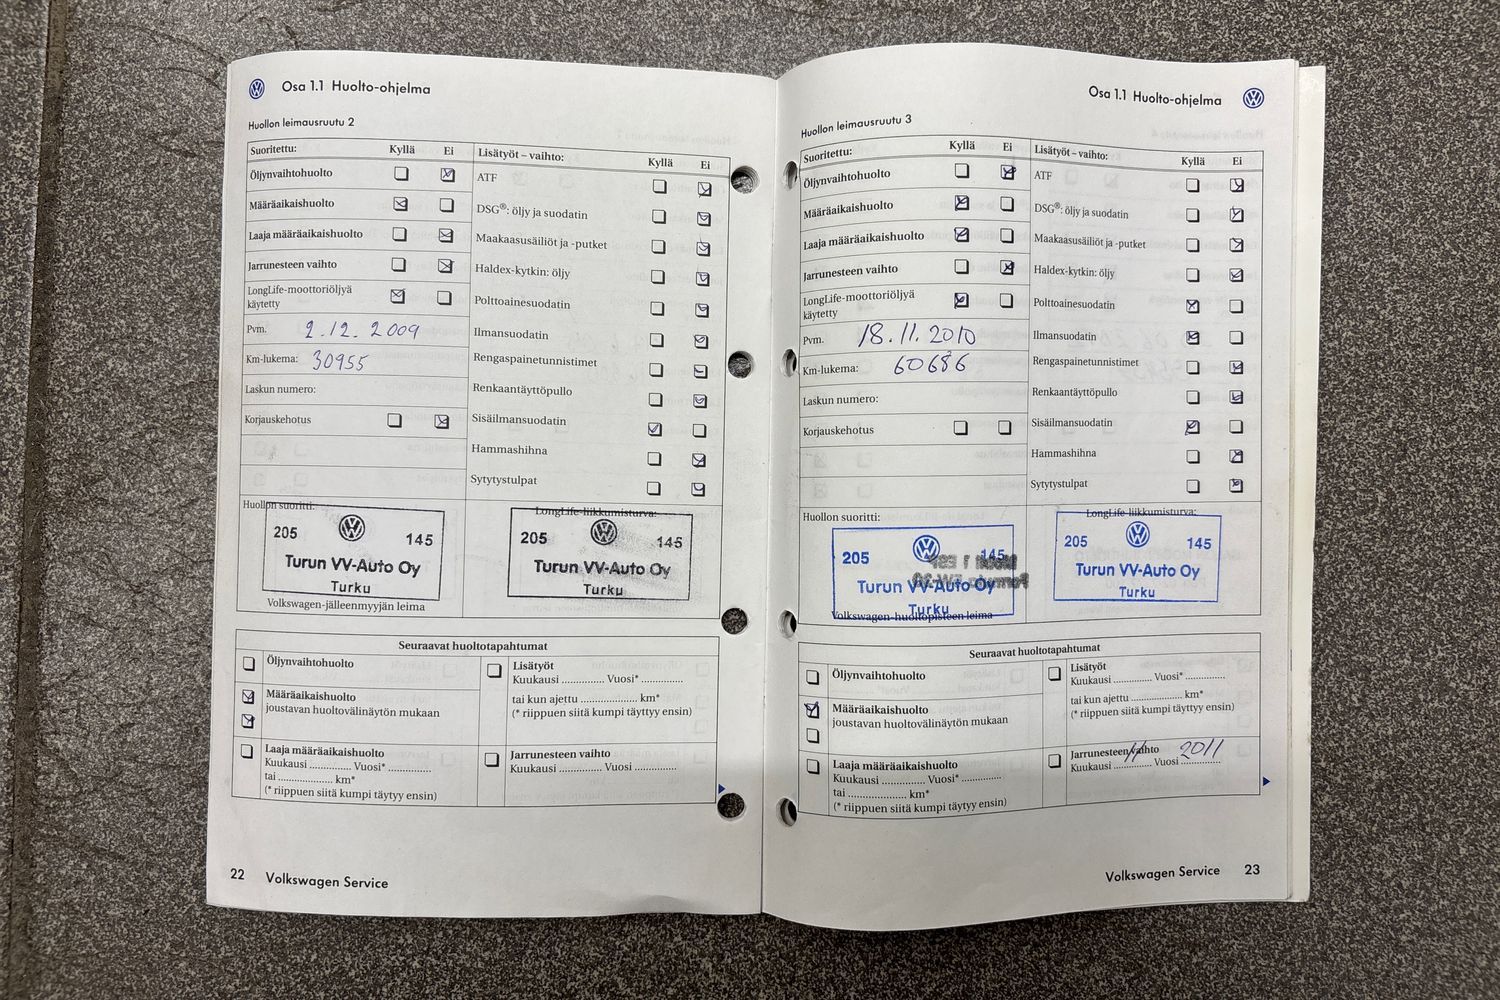 Osa 1.1 Huolto-ohjelma
Huollon leimausruutu 2
Suoritettu: Kyllä Ei
Öljynvaihtohuolto
Määräaikaishuolto
Laaja määräaikaishuolto
Jarrunesteen vaihto
LongLife-moottoriöljyä
käytetty
Pvm. 2.12.2009
Km-lukema: 30955
Laskun numero:
Korjauskehotus
Lisätyöt – vaihto: Kyllä Ei
ATF
DSG®: öljy ja suodatin
Maakaasusäiliöt ja -putket
Haldex-kytkin: öljy
Polttoainesuodatin
Ilmansuodatin
Rengaspainetunnistimet
Renkaantäyttöpullo
Sisäilmansuodatin
Hammashihna
Sytytystulpat
Huollon suoritti:
205 145
Turun VV-Auto Oy
Turku
Volkswagen-jälleenmyyjän leima
LongLife-liikkumisturva:
205 145
Turun VV-Auto Oy
Turku
Seuraavat huoltotapahtumat
Öljynvaihtohuolto
Määräaikaishuolto
joustavan huoltovälinäytön mukaan
Laaja määräaikaishuolto
Kuukausi .............. Vuosi* ..............
tai .................... km*
(* riippuen siitä kumpi täytyy ensin)
Lisätyöt
Kuukausi .............. Vuosi* ..............
tai kun ajettu .................... km*
(* riippuen siitä kumpi täyttyy ensin)
Jarrunesteen vaihto
Kuukausi .............. Vuosi ..............
22 Volkswagen Service
Osa 1.1 Huolto-ohjelma
Huollon leimausruutu 3
Suoritettu: Kyllä Ei
Öljynvaihtohuolto
Määräaikaishuolto
Laaja määräaikaishuolto
Jarrunesteen vaihto
LongLife-moottoriöljyä
käytetty
Pvm. 18.11.2010
Km-lukema: 60686
Laskun numero:
Korjauskehotus
Lisätyöt – vaihto: Kyllä Ei
ATF
DSG®: öljy ja suodatin
Maakaasusäiliöt ja -putket
Haldex-kytkin: öljy
Polttoainesuodatin
Ilmansuodatin
Rengaspainetunnistimet
Renkaantäyttöpullo
Sisäilmansuodatin
Hammashihna
Sytytystulpat
Huollon suoritti:
205 145
Turun VV-Auto Oy
Turku
Volkswagen-huoltopisteen leima
LongLife-liikkumisturva:
205 145
Turun VV-Auto Oy
Turku
Seuraavat huoltotapahtumat
Öljynvaihtohuolto
Määräaikaishuolto
joustavan huoltovälinäytön mukaan
Laaja määräaikaishuolto
Kuukausi .............. Vuosi* ..............
tai .................... km*
(* riippuen siitä kumpi täytyy ensin)
Lisätyöt
Kuukausi .............. Vuosi* ..............
tai kun ajettu .................... km*
(* riippuen siitä kumpi täyttyy ensin)
Jarrunesteen vaihto
Kuukausi 11 Vuosi 2011
Volkswagen Service 23